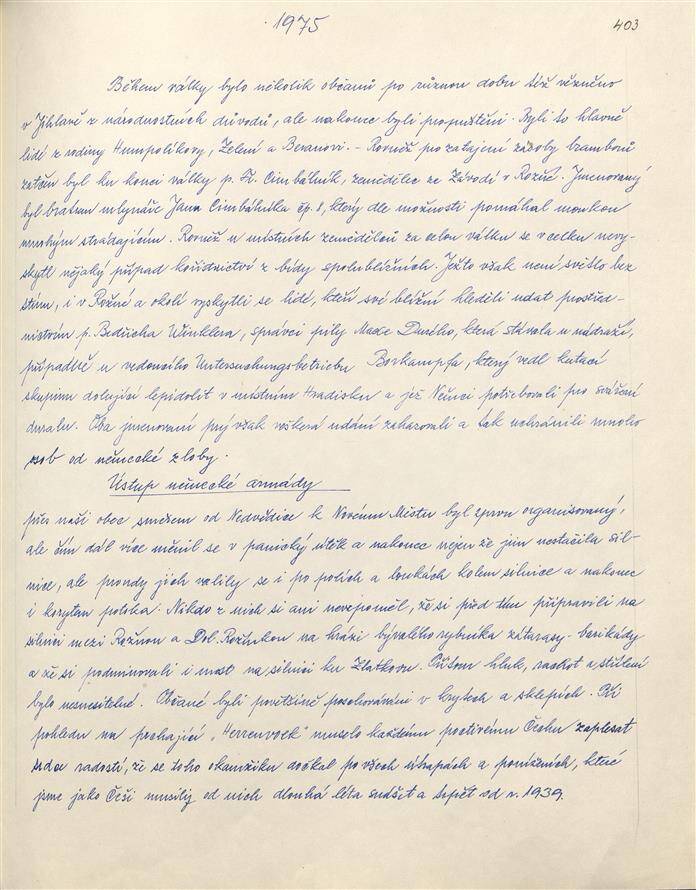 1975
403
Během války bylo několik občanů po různou dobu též vězněno
v Jihlavě z národnostních důvodů, ale nakonec byli propuštěni. Byli to hlavně
lidé z rodiny Humpolíkovy, Zelení a Beranovi. - Rovněž pro zatajení zásoby bramborů
zatčen byl ku konci války p. Fr. Cimbálník, zemědělec ze Závodí v Rožné. Jmenovaný
byl bratrem mlynáře Jana Cimbálníka čp. 8, který dle možnosti pomáhal moukou
mnohým strádajícím. Rovněž u místních zemědělců za celou válku se v celku nevy-
skytl nějaký případ kořistnictví z bídy spolubližních. Ježto však není světlo bez
stínu, i v Rožné a okolí vyskytli se lidé, kteří své bližní hleděli udat prostřed-
nictvím p. Bedřicha Winklera, správce pily Madce Durého, která stávala u nádraží,
případně u vedoucího Untersuchungsbetriebu Borkampfa, který vedl kutací
skupinu dolující lepidolit v místním Hradisku a jež Němci potřebovali pro sváření
duralu. Oba jmenovaní prý však veškerá udání zahazovali a tak uchránili mnoho
osob od německé zloby.
Ústup německé armády
přes naši obec směrem od Nedvědice k Novému Městu byl zprvu organisovaný,
ale čím dál více měnil se v panický útěk a nakonec nejen že jim nestačila sil-
nice, ale proudy jich valily se i po polích a loukách kolem silnice a nakonec
i korytem potoka. Nikdo z nich si ani nevzpoměl, že si před tím připravili na
silnici mezi Rožnou a Dol. Rožínkou na hrázi bývalého rybníka zátarasy - barikády
a že si podminovali i most na silnici ku Zlatkovu. Přitom hluk, rachot a střílení
bylo nesnesitelné. Občané byli povětšině poschováváni v krytech a sklepích. Při
pohledu na prchající "Herrenvock" muselo každému poctivému Čechu zaplesat
srdce radostí, že se toho okamžiku dočkal po všech útrapách a poníženích, které
jsme jako Češi musily od nich dlouhá léta snášet a trpět od r. 1939.